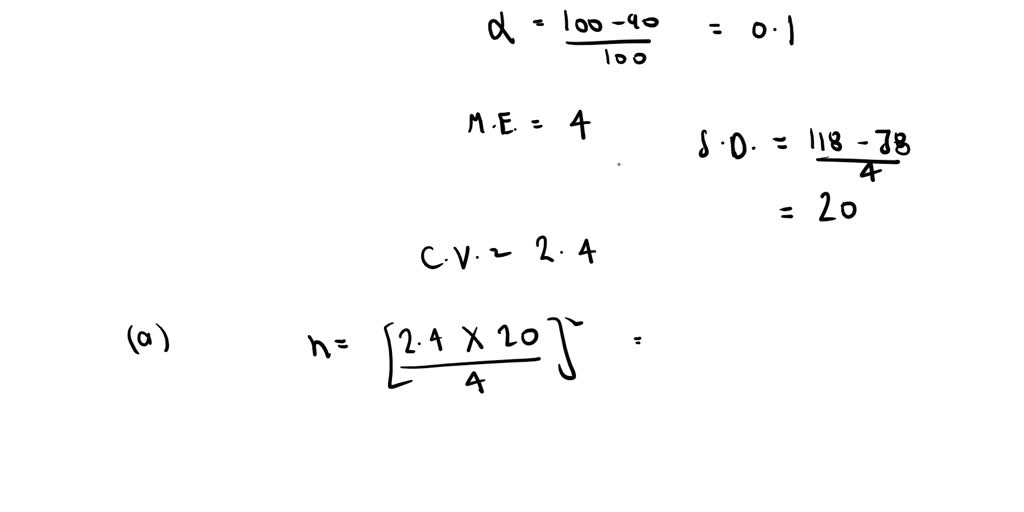 α = 100 - 90 / 100 = 0.1
M.E. = 4
S.D. = 118 - 38 / 4
= 20
C.V. = 2.4
(a) n = [2.4 X 20 / 4]² =